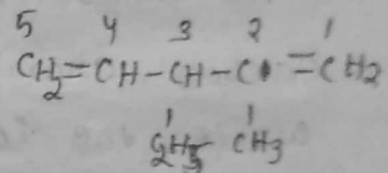 5 4 3 2 1
CH2=CH-CH-C=CH2
C2H5 CH3